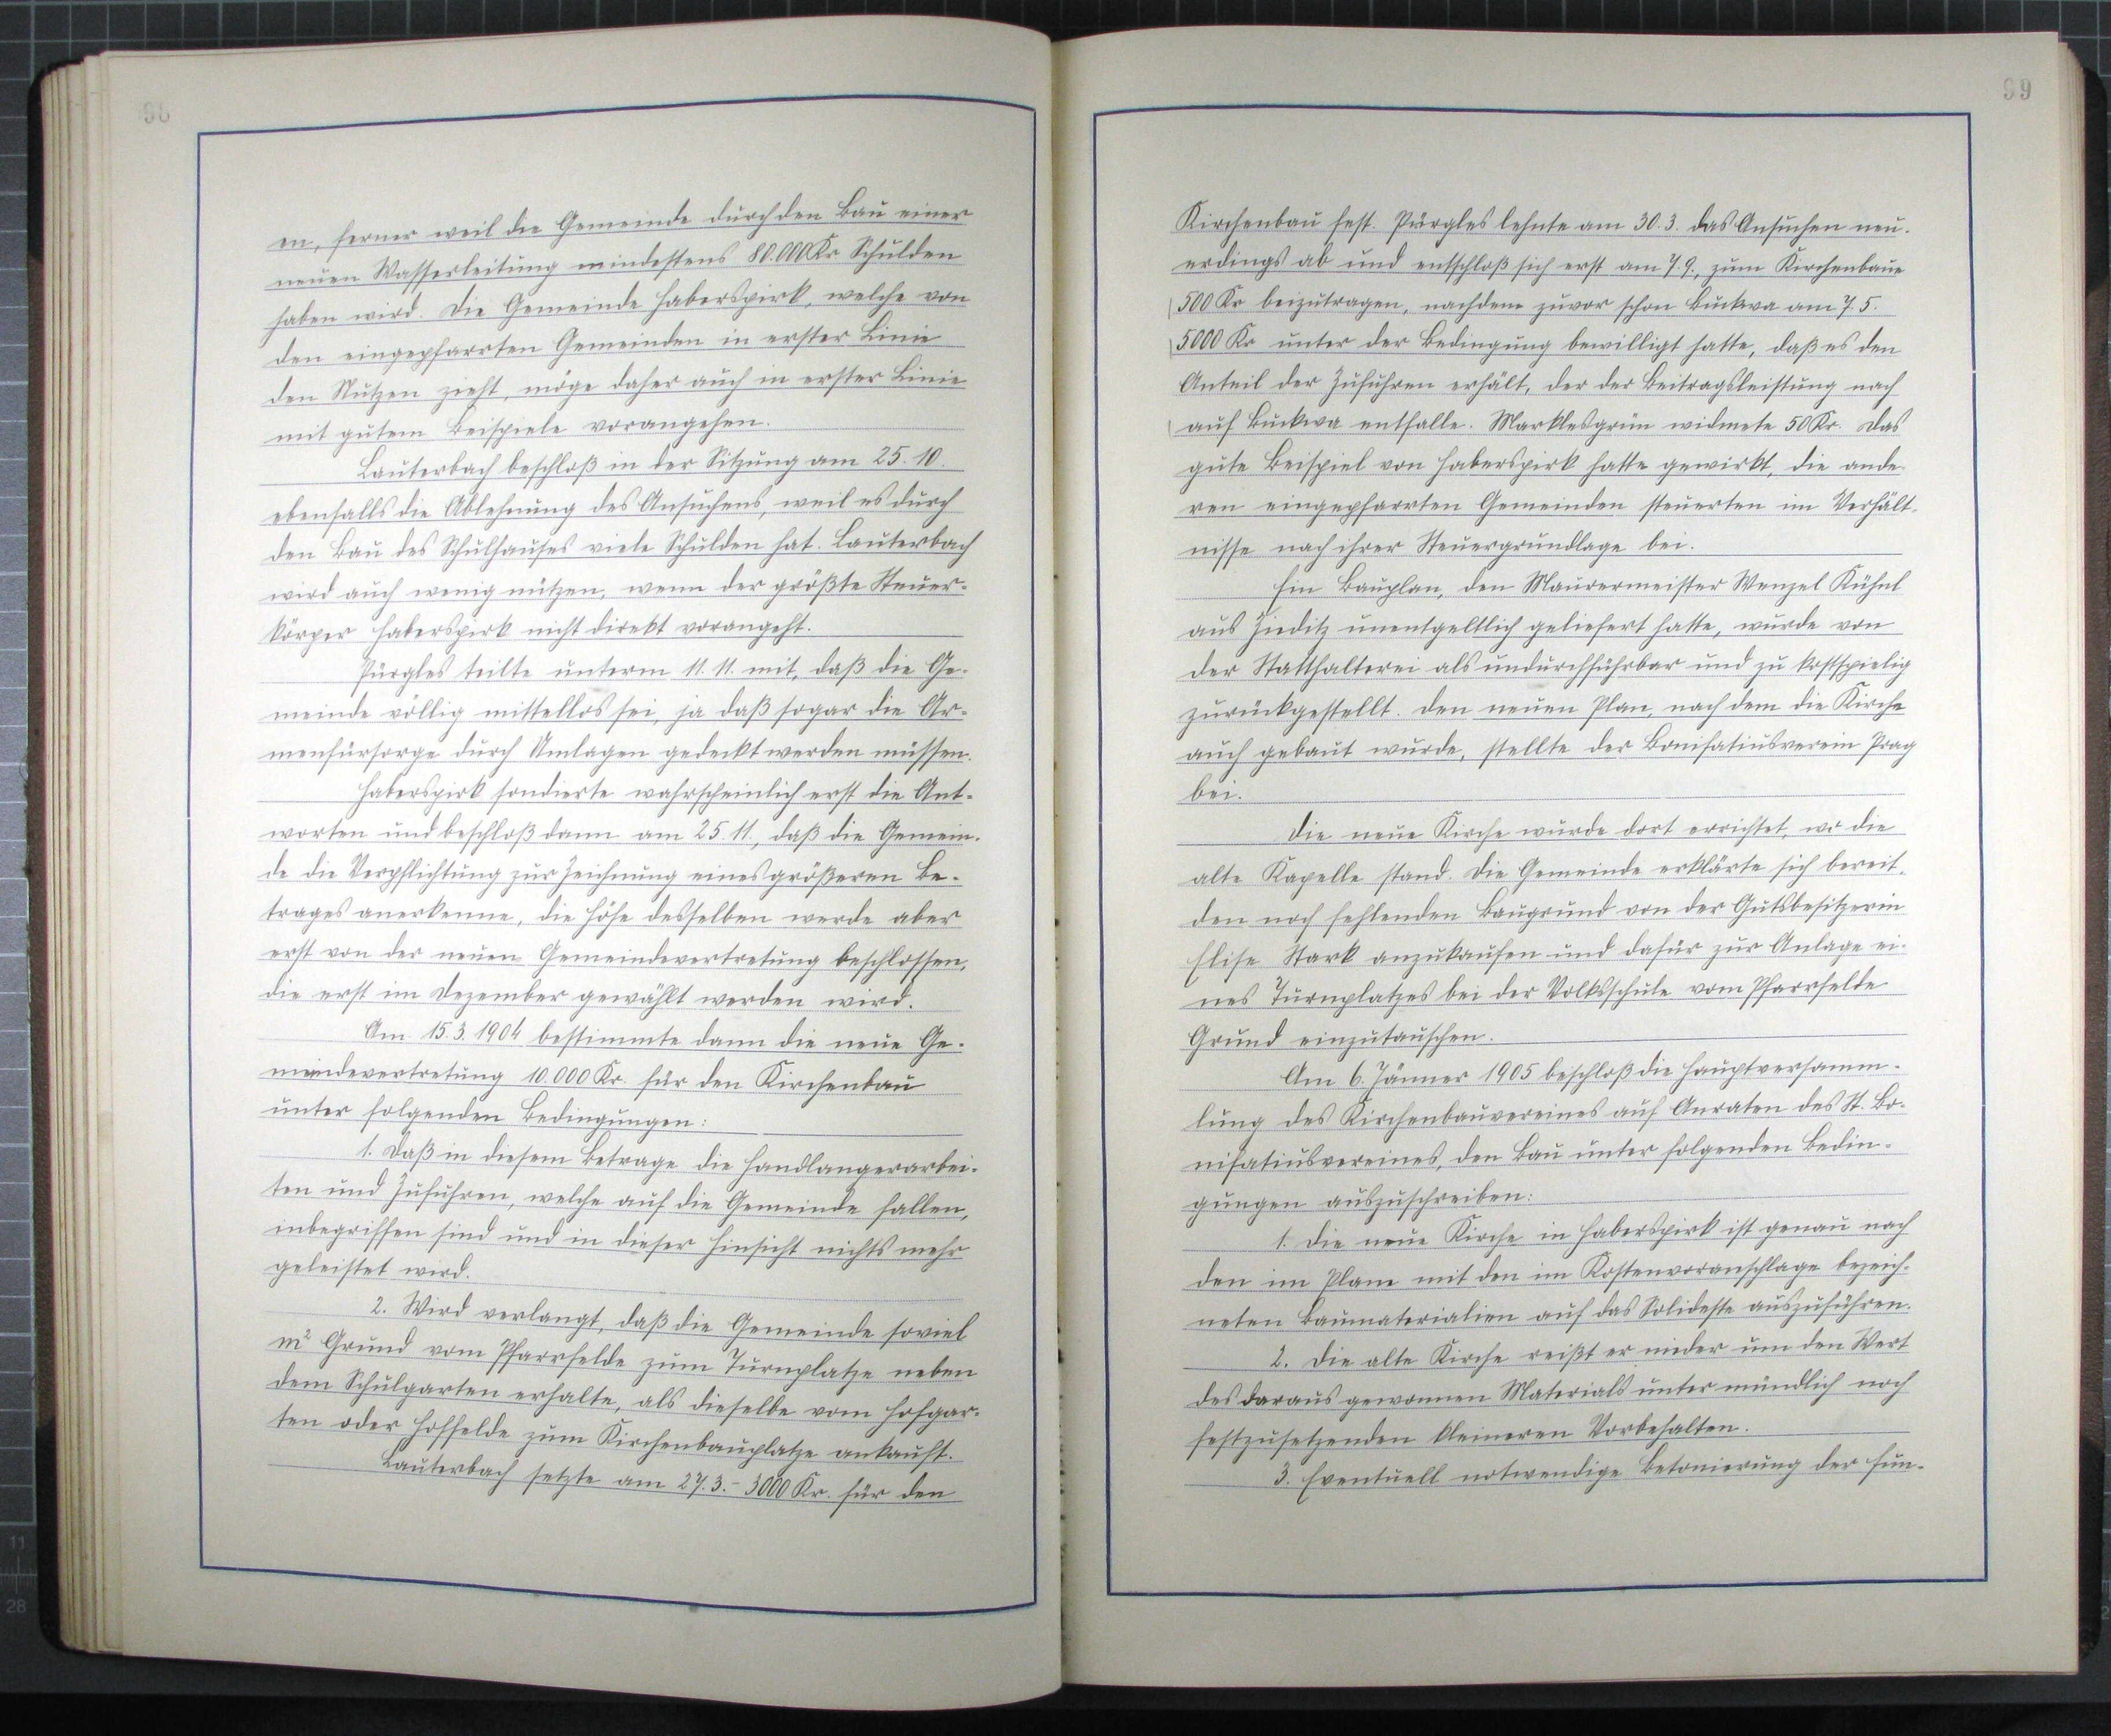 98
en, ferner weil die Gemeinde durch den Bau einer
neuen Wasserleitung mindestens 80.000 Kr Schulden
haben wird. Die Gemeinde Haberspirk, welche von
den eingepfarrten Gemeinden in erster Linie
den Nutzen zieht, möge daher auch in erster Linie
mit gutem Beispiele vorangehen.
Lauterbach beschloß in der Sitzung am 25. 10.
ebenfalls die Ablehnung des Ansuchens, weil es durch
den Bau des Schulhauses viele Schulden hat. Lauterbach
wird auch wenig nützen, wenn der größte Steuer-
körper Haberspirk nicht direkt vorangeht.
Pürgles teilte unterm 11. 11. mit, daß die Ge-
meinde völlig mittellos sei, ja daß sogar die Ar-
menfürsorge durch Umlagen gedeckt werden müssen.
Haberspirk sondierte wahrscheinlich erst die Ant-
worten und beschloß dann am 25. 11., daß die Gemein-
de die Verpflichtung zur Zeichnung eines größeren Be-
trages anerkenne, die Höhe desselben werde aber
erst von der neuen Gemeindevertretung beschlossen,
die erst im Dezember gewählt werden wird.
Am 15. 3. 1904 bestimmte dann die neue Ge-
meindevertretung 10.000 Kr. für den Kirchenbau
unter folgenden Bedingungen:
1. Daß in diesem Betrage die Handlangerarbei-
ten und Zufuhren, welche auf die Gemeinde fallen,
inbegriffen sind und in dieser Hinsicht nichts mehr
geleistet wird.
2. Wird verlangt, daß die Gemeinde soviel
m² Grund vom Pfarrfelde zum Turnplatze neben
dem Schulgarten erhalte, als dieselbe vom Hofgar-
ten oder Hoffelde zum Kirchenbauplatze ankauft.
Lauterbach setzte am 27. 3. - 3000 Kr. für den
99
Kirchenbau fest. Pürgles lehnte am 30. 3. das Ansuchen neu-
erdings ab und entschloß sich erst am 7. 9., zum Kirchenbaue
500 Kr beizutragen, nachdem zuvor schon Buckwa am 7. 5.
5000 Kr unter der Bedingung bewilligt hatte, daß es den
Anteil der Zufuhren erhält, der der Beitragsleistung nach
auf Buckwa entfalle. Marklesgrün widmete 50 Kr. Das
gute Beispiel von Haberspirk hatte gewirkt, die ande-
ren eingepfarrten Gemeinden steuerten im Verhält-
nisse nach ihrer Steuergrundlage bei.
Ein Bauplan, den Maurermeister Wenzel Kühnl
aus Zieditz unentgeltlich geliefert hatte, wurde von
der Statthalterei als undurchführbar und zu kostspielig
zurückgestellt. Den neuen Plan, nach dem die Kirche
auch gebaut wurde, stellte der Bonifatiusverein Prag
bei.
Die neue Kirche wurde dort errichtet, wo die
alte Kapelle stand. Die Gemeinde erklärte sich bereit,
den noch fehlenden Baugrund von der Gutsbesitzerin
Elise Stark anzukaufen und dafür zur Anlage ei-
nes Turnplatzes bei der Volksschule vom Pfarrfelde
Grund einzutauschen.
Am 6. Jänner 1905 beschloß die Hauptversamm-
lung des Kirchenbauvereines auf Anraten des St. Bo-
nifatiusvereines, den Bau unter folgenden Bedin-
gungen auszuschreiben:
1. Die neue Kirche in Haberspirk ist genau nach
den im Plane mit den im Kostenvoranschlage bezeich-
neten Baumaterialien auf das Solideste auszuführen.
2. Die alte Kirche reißt er nieder um den Wert
des daraus gewonnen Materials unter mündlich noch
festzusetzenden kleineren Vorbehalten.
3. Eventuell notwendige Betonierung der Fun-
11
28